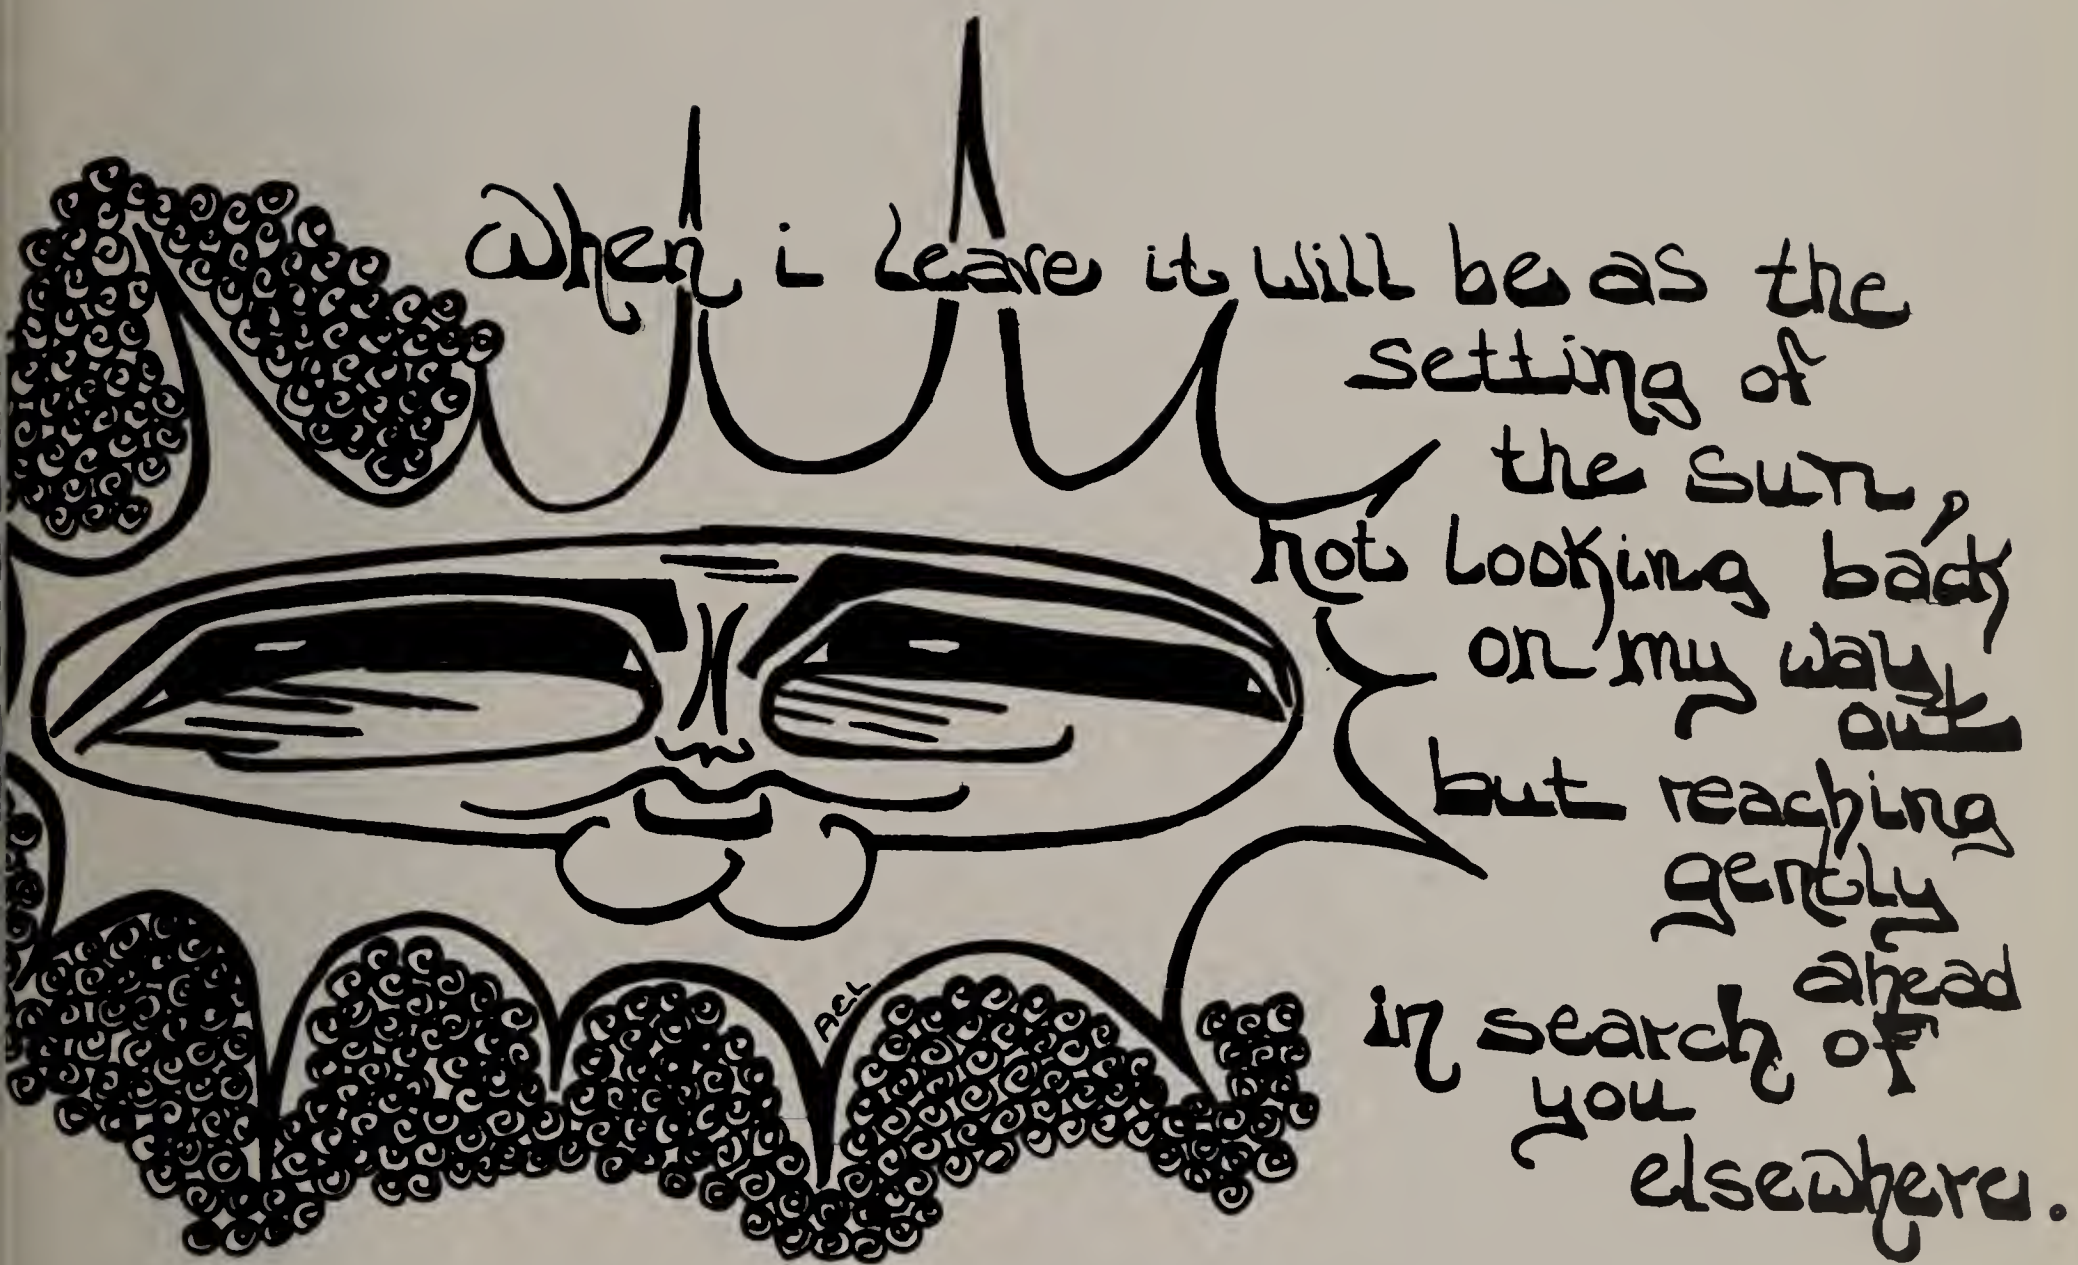 When i leave it will be as the
setting of
the sun,
not looking back
on my way
out
but reaching
gently
ahead
in search of
you
elsewhere.
AEL